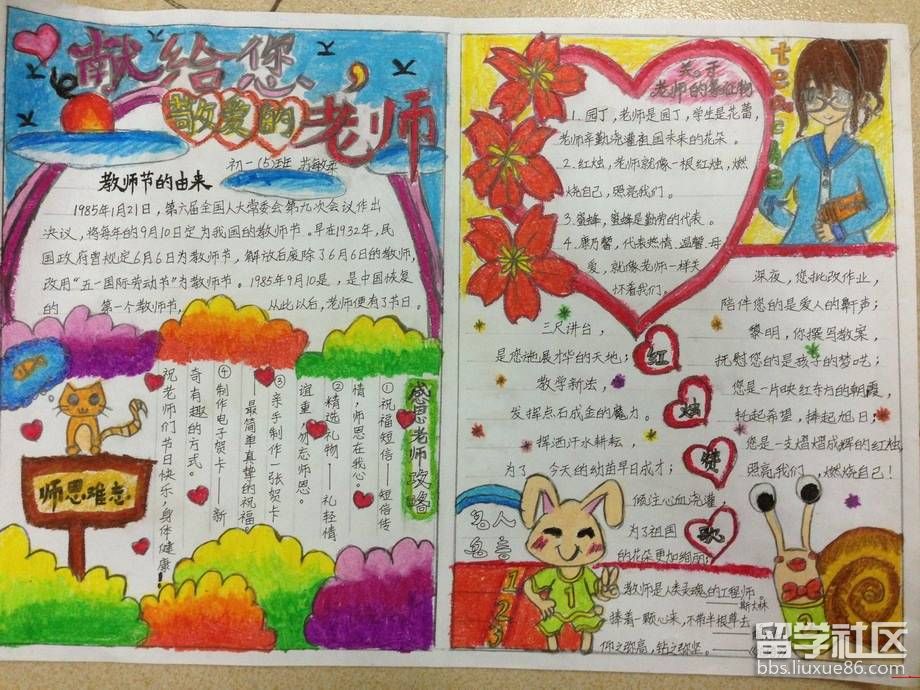 献给您、
敬爱的老师
初一(5)班
教师节的由来
1985年1月21日，第六届全国人大常委会第九次会议作出
决议，将每年的9月10日定为我国的教师节。早在1932年，民
国政府曾规定6月6日为教师节，解放后废除了6月6日的教师节，
改用“五一国际劳动节”为教师节。1985年9月10是，是中国恢复
的 第一个教师节， 从此以后，老师便有了节日。
感恩老师攻略
①祝福短信——短信传
情，师恩在我心。
②精选礼物——礼轻情
谊重，勿忘师恩。
③亲手制作一张贺卡
——最简单真挚的祝福
④制作电子贺卡——新
奇有趣的方式。
祝老师们节日快乐，身体健康！
师恩难忘
关于
老师的象征物
1.园丁，老师是园丁，学生是花蕾，
老师辛勤浇灌祖国未来的花朵。
2.红烛，老师就像一根红烛，燃
烧自己，照亮我们。
3.蜜蜂，蜜蜂是勤劳的代表。
4.康乃馨，代表热情、温馨、母
爱，就像老师一样关
怀着我们。
红烛赞歌
三尺讲台，
是您施展才华的天地；
教学新法，
发挥点石成金的魔力。
挥洒汗水耕耘，
为了 今天的幼苗早日成才；
倾注心血浇灌，
为了祖国
的花朵更加绚丽；
深夜，您批改作业，
陪伴您的是爱人的鼾声；
黎明，你撰写教案，
抚慰您的是孩子的梦呓；
您是一片映红东方的朝霞，
托起希望，捧起旭日；
您是一支熠熠成辉的红烛，
照亮我们，燃烧自己！
名人名言
1
2
3
教师是人类灵魂的工程师。
——斯大林
捧着一颗心来，不带半根草去
仰之弥高，钻之弥坚。
1
2
留学社区
bbs.liuxue86.com